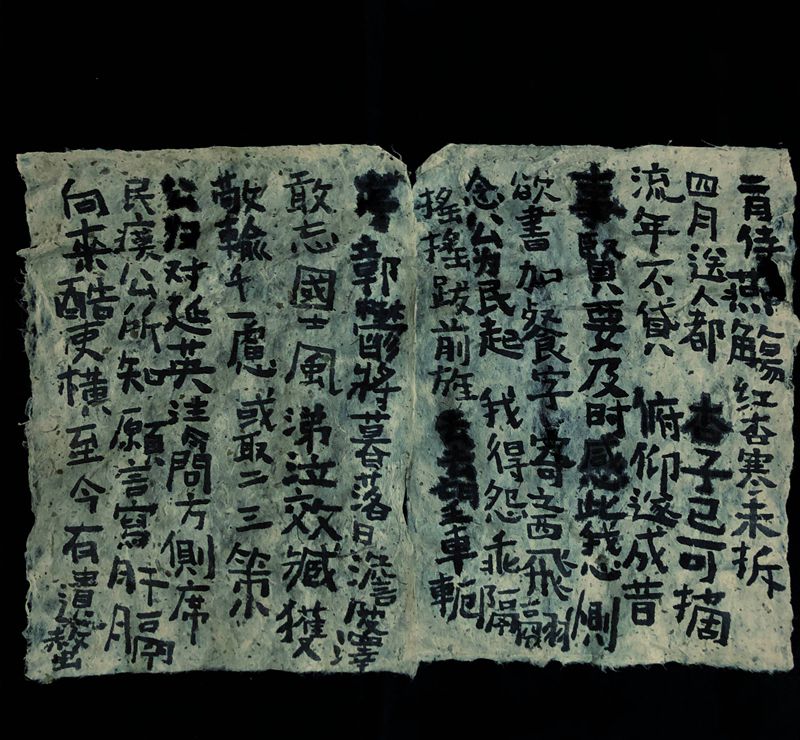 二月侍燕觴紅杏寒未拆
四月送人都 杏子已可摘
流年不貸 俯仰遂成昔
事賢要及时感此我心惻
欲書加餐字寄之西飛翮
念公为民起 我得怨乖隔
搖搖跋前旌 車軛
鄣鬱將暮落日澹陂澤
敢忘國士風涕泣效臧獲
敬輸千一慮或取二三策
公归对延英清問方側席
民瘼公所知願言寫肝膈
向來酷吏橫至今有遺螫